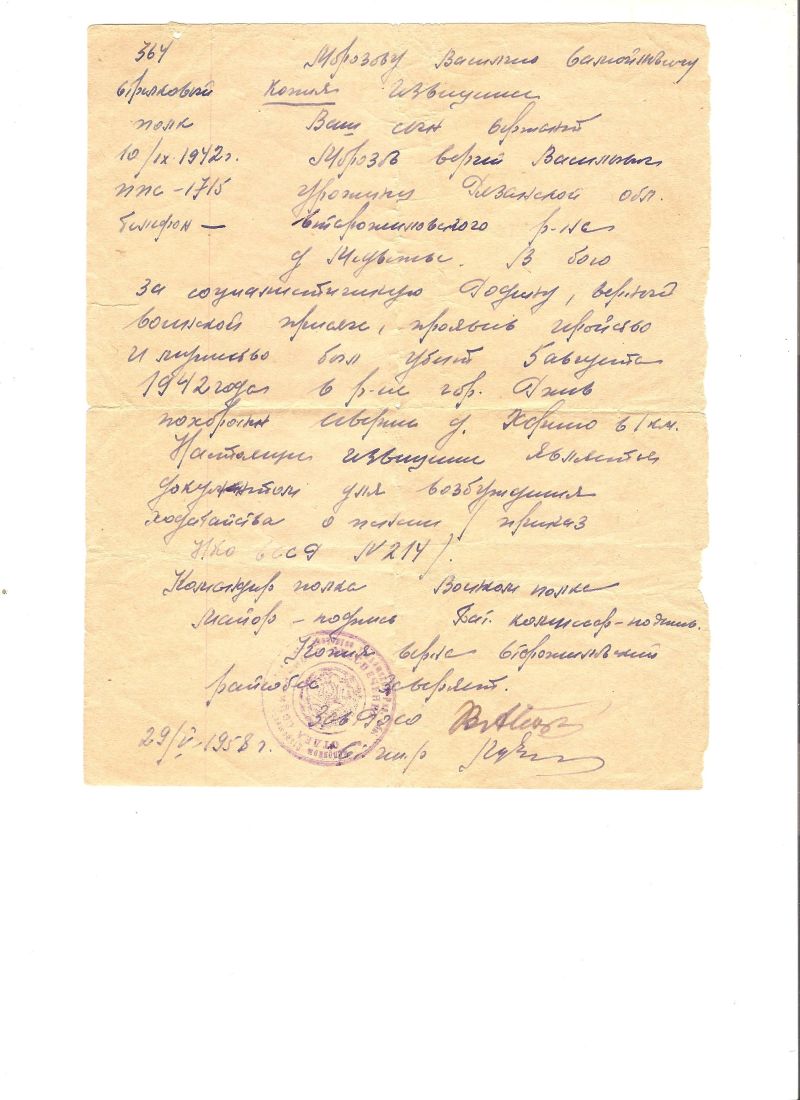 364 Морозову Василию Самойловичу
стрелковый Копия Извещение
полк Ваш сын сержант
10/IX-1942г. Морозов Сергей Васильевич
ппс-1715 уроженец Рязанской обл.
телефон — Старожиловского р-на
д. Медвежье. В бою
за социалистическую Родину, верный
воинской присяге, проявив геройство
и мужество был убит 5 августа
1942 года в р-не гор. Ржев
похоронен севернее д. Харино в 1 км.
Настоящее извещение является
документом для возбуждения
ходатайства о пенсии (приказ
НКО СССР N 214).
Командир полка Военком полка
майор – подпись Бат. комиссар – подпись.
Копия верна Старожиловский
райсобес заверяет.
Зав Рсо
29/V-1958 г.